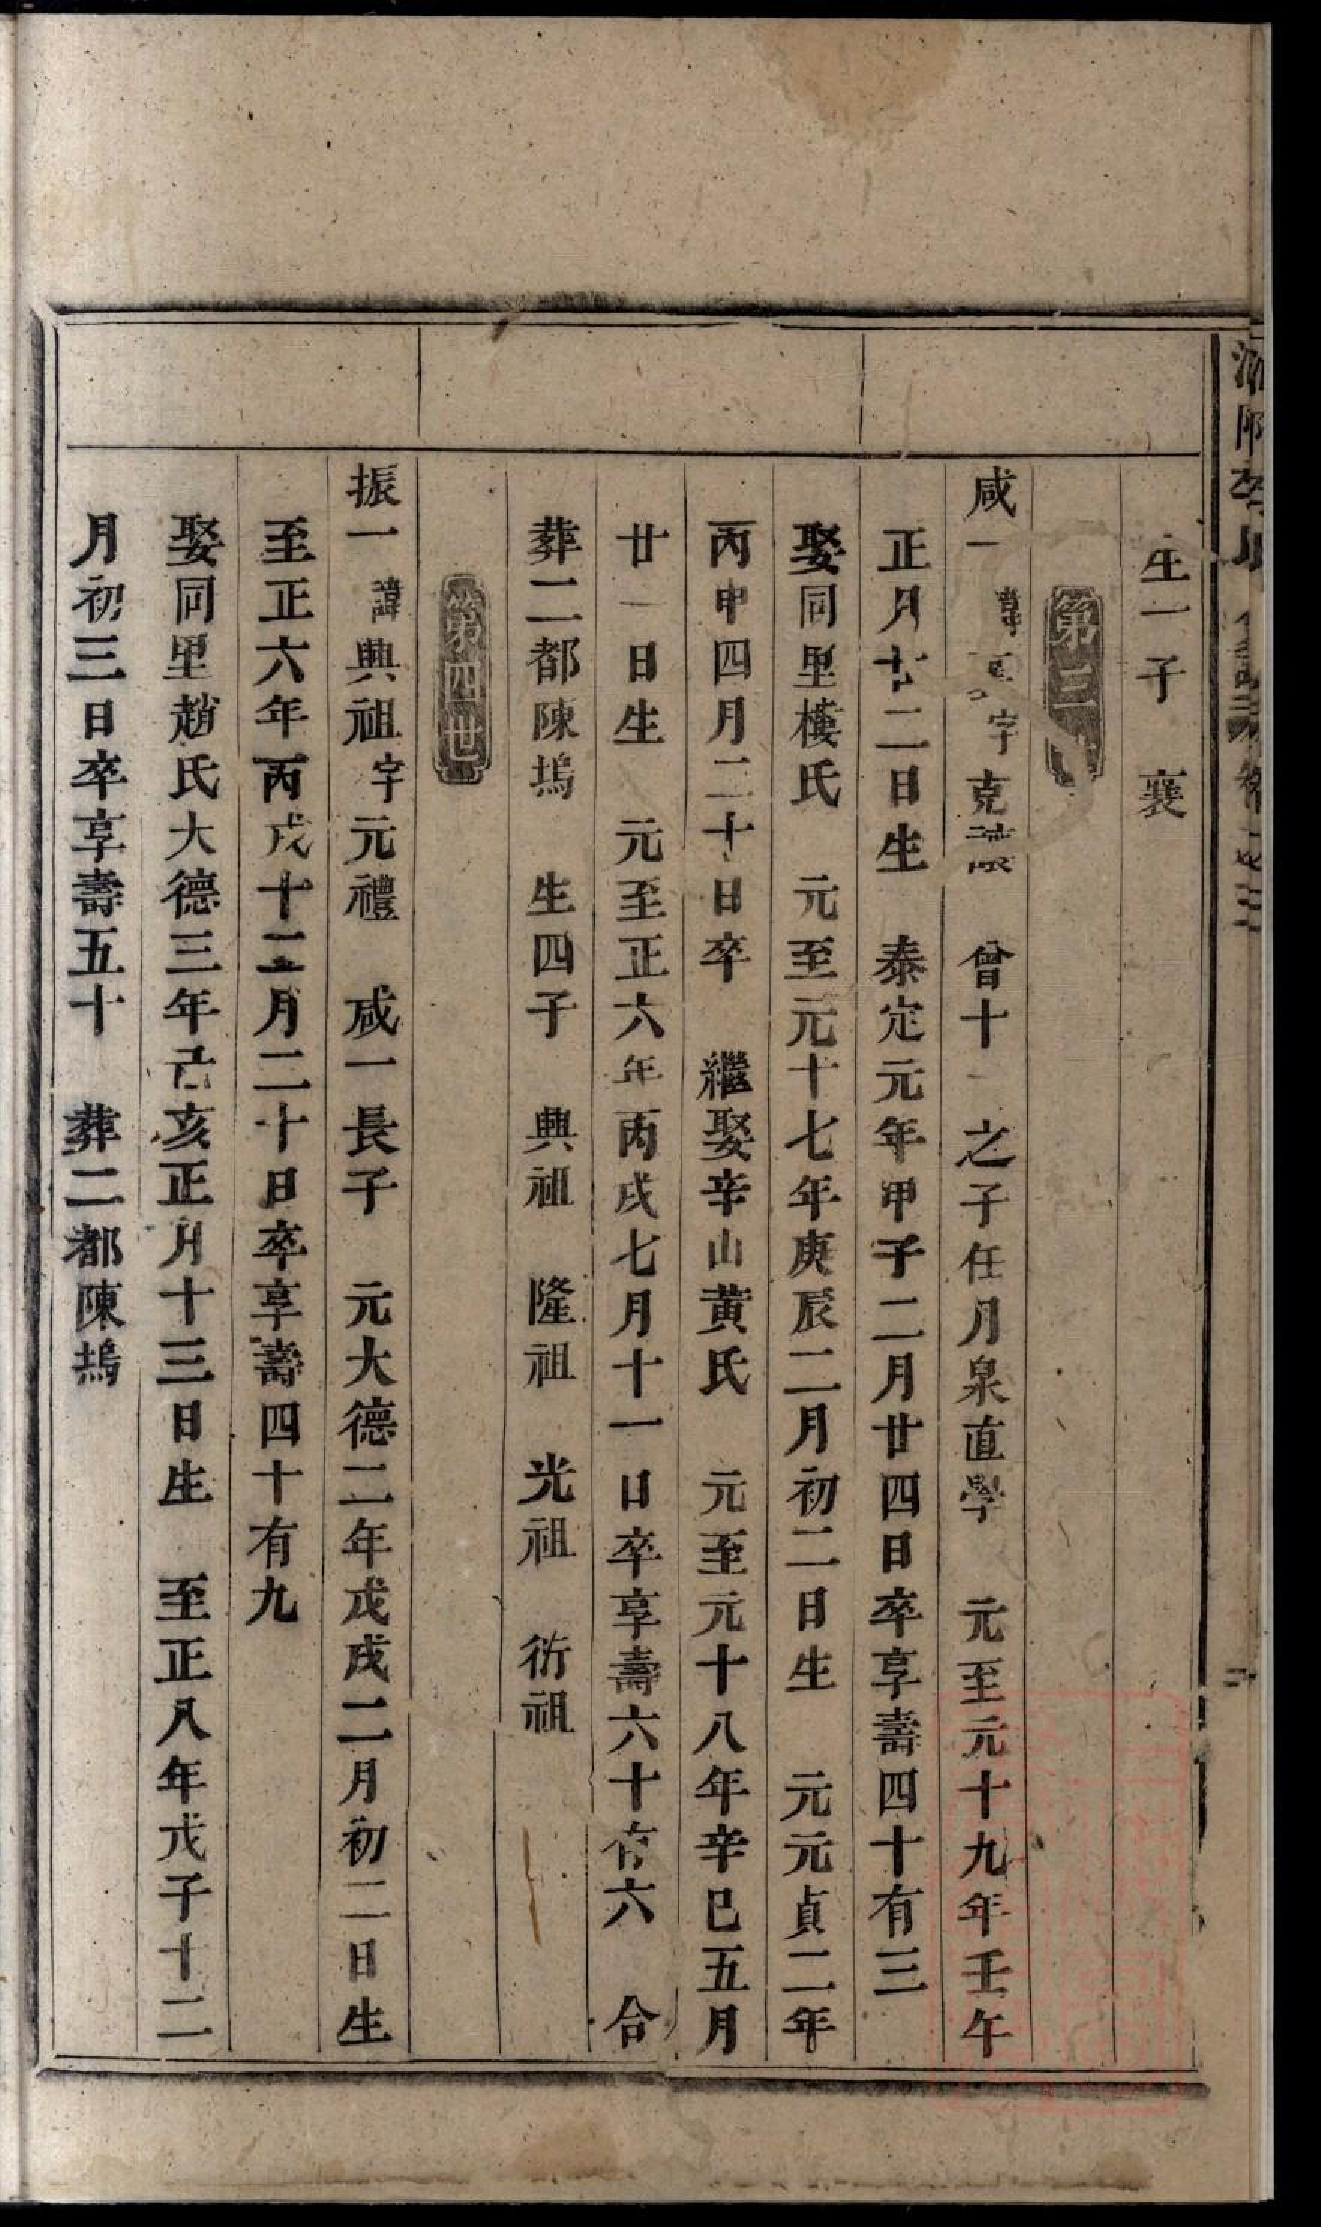 生一子　襄
第三
咸一　諱　字克　曾十一之子任月泉直學　元至元十九年壬午
正月廿二日生　泰定元年甲子二月廿四日卒享壽四十有三
娶同里樓氏　元至元十七年庚辰二月初二日生　元元貞二年
丙申四月二十日卒　繼娶辛山黄氏　元至元十八年辛巳五月
廿一日生　元至正六年丙戌七月十一日卒享壽六十有六　合
葬二都陳塢　生四子　興祖　隆祖　光祖　衍祖
第四世
振一諱興祖字元禮　咸一長子　元大德二年戊戌二月初二日生
至正六年丙戌十二月二十日卒享壽四十有九
娶同里趙氏大德三年己亥正月十三日生　至正八年戊子十二
月初三日卒享壽五十　葬二都陳塢